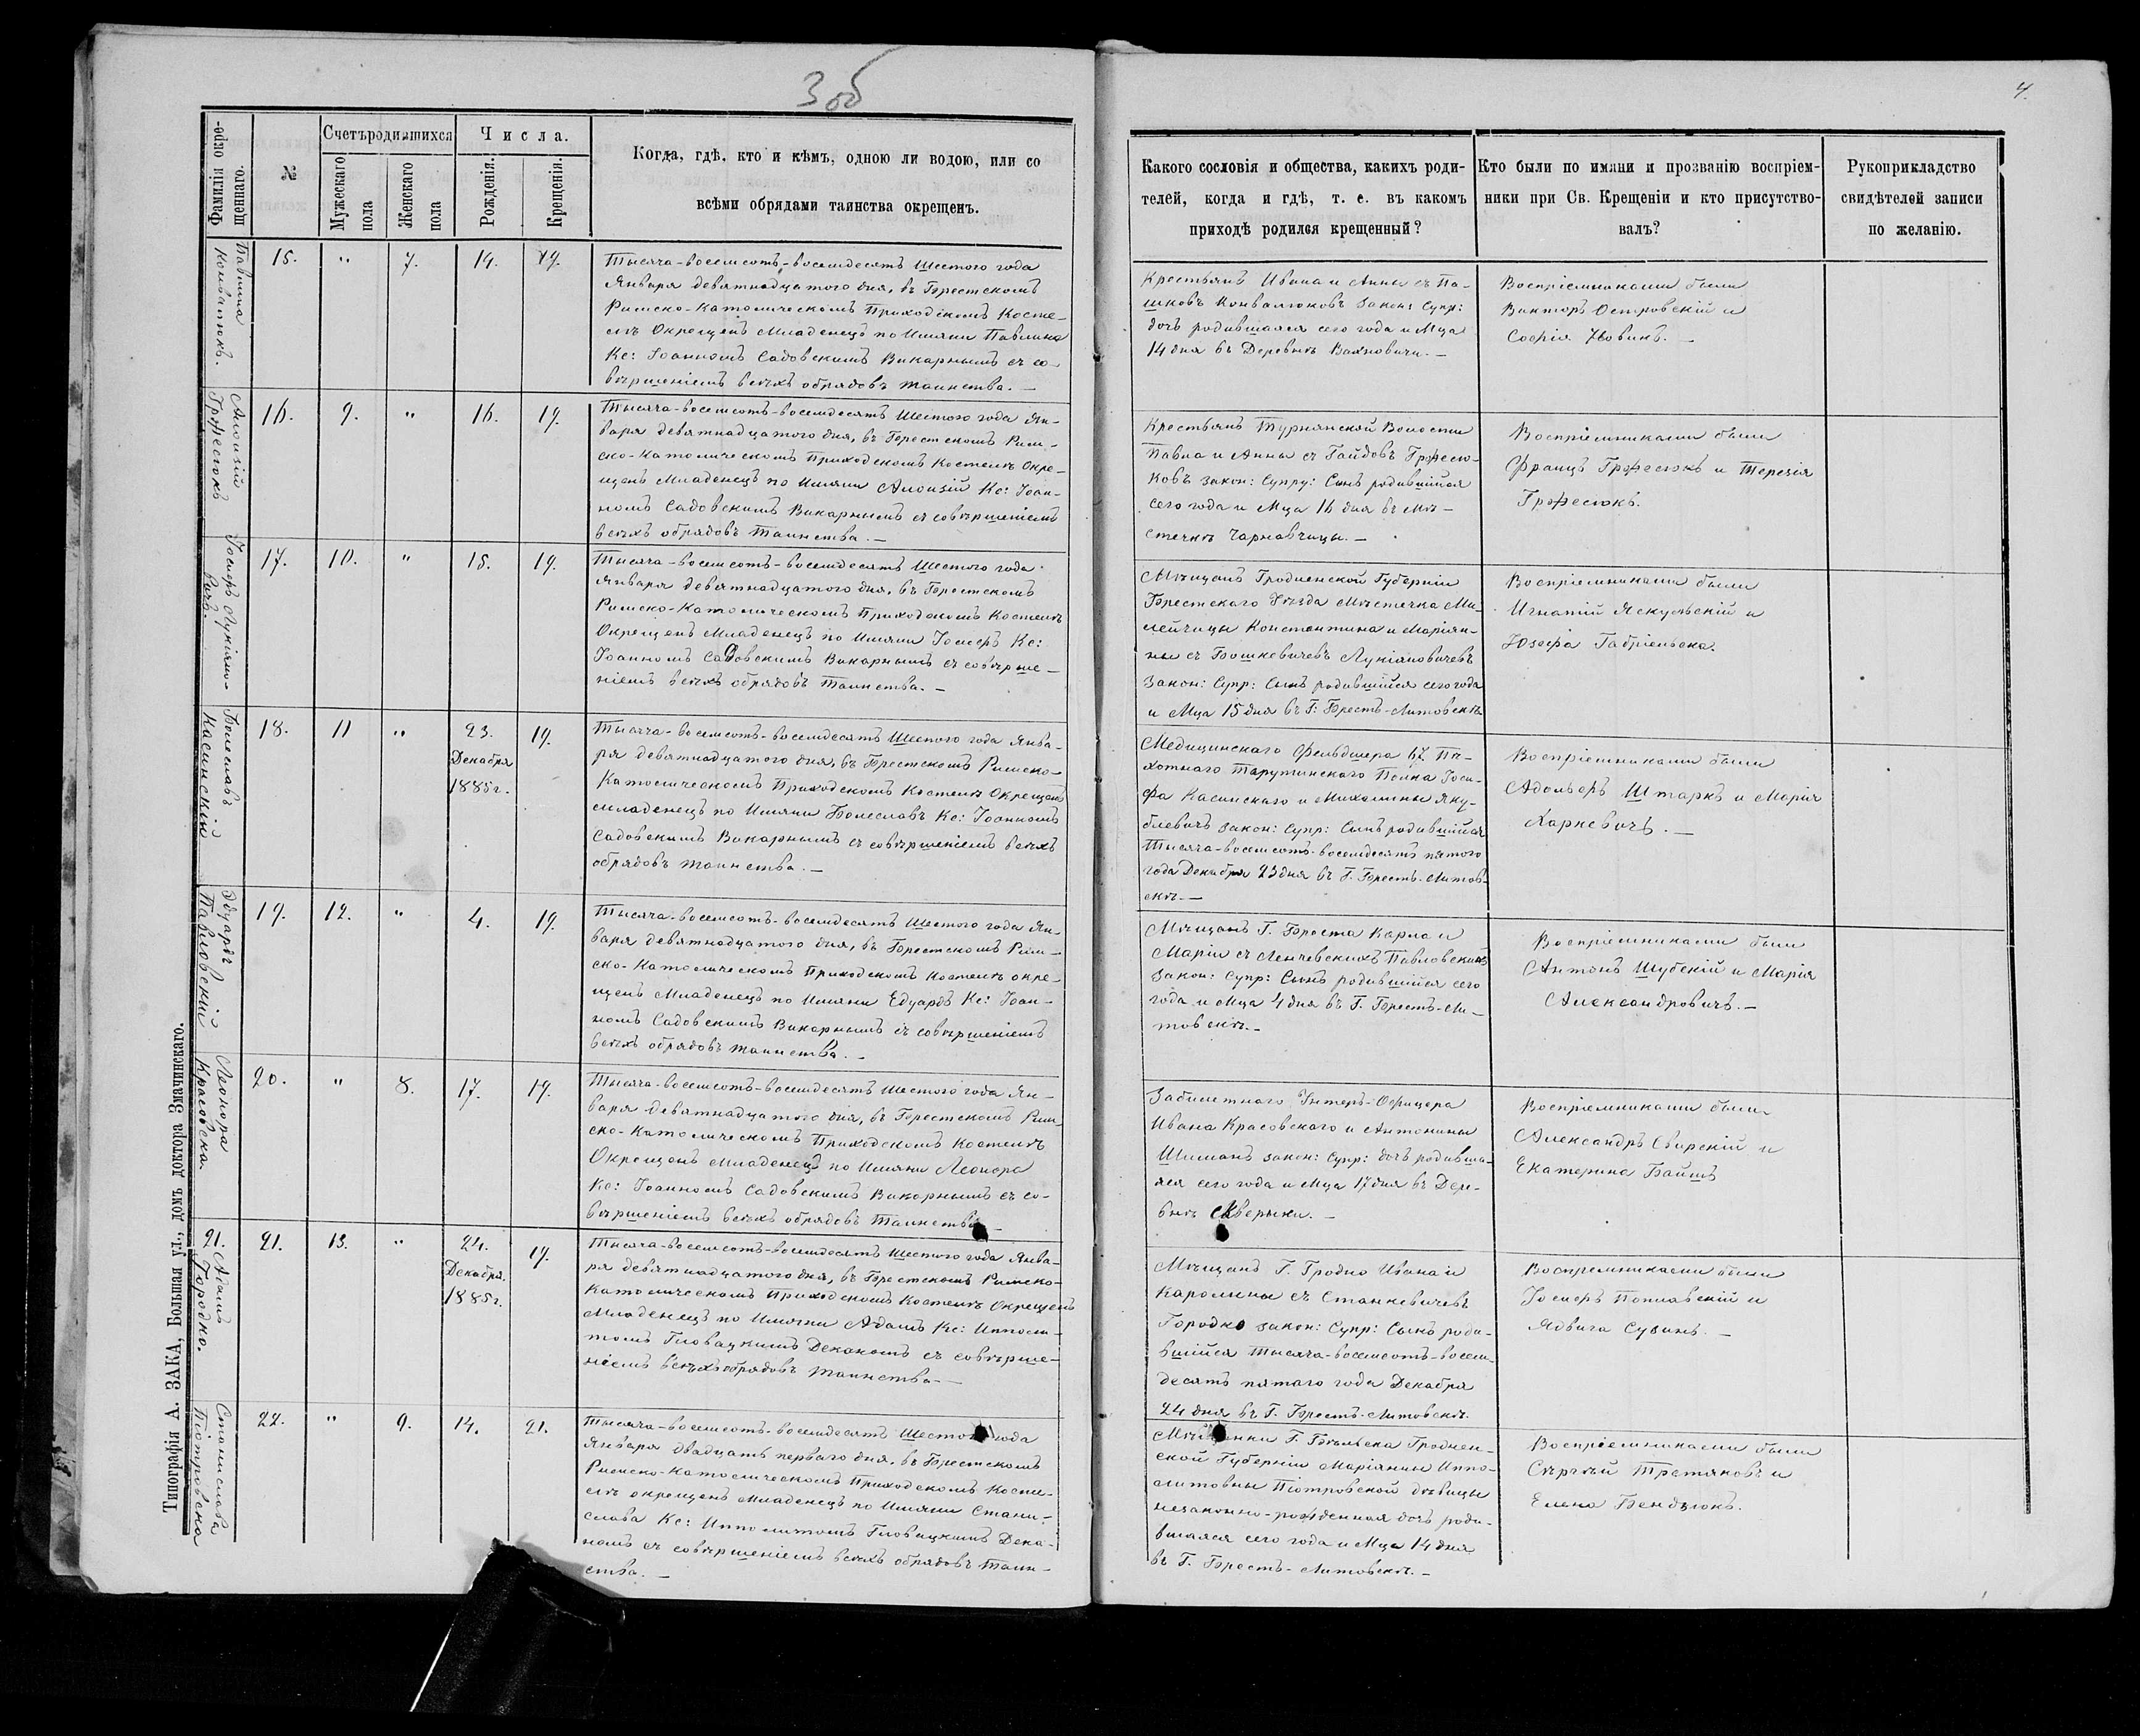 3 об
4.
Фамиліи окре-
щеннаго.
№
Счетъ родившихся
Мужескаго
пола
Женскаго
пола
Числа.
Рожденія.
Крещенія.
Когда, гдѣ, кто и кѣмъ, одною ли водою, или со
всѣми обрядами таинства окрещенъ.
Какого сословія и общества, какихъ роди-
телей, когда и гдѣ, т. е. въ какомъ
приходѣ родился крещенный?
Кто были по имяни и прозванію воспріем-
ники при Св. Крещеніи и кто присутство-
валъ?
Рукоприкладство
свидѣтелей записи
по желанію.
Павлина
Конвалюкъ.
15.
"
7.
14.
19.
Тысяча-восемсотъ-восемдесятъ Шестого года
Января девятнадцатого дня, въ Брестскомъ
Римско-Католическомъ Приходскомъ Косте-
лѣ Окрещенъ Младенецъ по Имяни Павлина
Кс: Іоанномъ Садовскимъ Викарнымъ съ со-
вѣршеніемъ всѣхъ обрядовъ таинства. —
Крестьянъ Ивана и Анны съ Па-
шковъ Конвалюковъ закон: Супр:
дочь родившаяся сего года и Мца
14 дня въ Деревнѣ Вахновичи. —
Воспріемниками были
Викторъ Островскій и
Софія Новикъ. —
Алоизій
Грфесюкъ
16.
9.
"
16.
19.
Тысяча-восемсотъ-восемдесятъ Шестого года Ян-
варя девятнадцатого дня, въ Брестскомъ Рим-
ско-Католическомъ Приходскомъ Костелѣ Окре-
щенъ Младенецъ по Имяни Алоизій Кс: Іоан-
номъ Садовскимъ Викарнымъ съ совѣршеніемъ
всѣхъ обрядовъ Таинства. —
Крестьянъ Турнянской Волости
Павла и Анны съ Гайдовъ Грфесю-
ковъ закон: Супру: Сынъ родившійся
сего года и Мца 16 дня въ Мѣ-
стечкѣ Чарнавчицы. —
Воспріемниками были
Францъ Грфесюкъ и Терезія
Грфесюкъ.
Іосифъ Лукіяно-
вичъ.
17.
10.
"
15.
19.
Тысяча-восемсотъ-восемдесятъ Шестого года
Января девятнадцатого дня, въ Брестскомъ
Римско-Католическомъ Приходскомъ Костелѣ
Окрещенъ Младенецъ по Имяни Іосифъ Кс:
Іоанномъ Садовскимъ Викарнымъ съ совѣрше-
ніемъ всѣхъ обрядовъ Таинства. —
Мѣщанъ Гродненской Губерніи
Брестскаго Уѣзда Мѣстечка Ми-
лейчицы Константина и Маріян-
ны съ Бошкевичевъ Лукіяновичевъ
Закон: Супр: Сынъ родившійся сего года
и Мца 15 дня въ Г: Брестъ-Литовскѣ
Воспріемниками были
Игнатій Яскульскій и
Юзефа Габріельска.
Болеславъ
Касинскій
18.
11
"
23.
Декабря
1885 г.
19.
Тысяча-восемсотъ-восемдесятъ Шестого года Янва-
ря девятнадцатого дня, въ Брестскомъ Римско-
Католическомъ Приходскомъ Костелѣ Окрещенъ
Младенецъ по Имяни Болеславъ Кс: Іоанномъ
Садовскимъ Викарнымъ съ совѣршеніемъ всѣхъ
обрядовъ таинства. —
Медицинскаго Фельдшера 67 Пѣ-
хотнаго Тарутинскаго Полка Іоси-
фа Касинскаго и Михалины Яку-
блевичъ закон: Супр: Сынъ родившійся
Тысяча-восемсотъ-восемдесятъ пятого
года Декабря 23 дня въ Г. Брестъ-Литов-
скѣ. —
Воспріемниками были
Адольфъ Штаркъ и Марія
Харкевичъ. —
Эдуардъ
Павловскій
19.
12.
"
4.
19.
Тысяча-восемсотъ-восемдесятъ Шестого года Ян-
варя девятнадцатого дня, въ Брестскомъ Рим-
ско-Католическомъ Приходскомъ Костелѣ окре-
щенъ Младенецъ по Имяни Едуардъ Кс: Іоан-
номъ Садовскимъ Викарнымъ съ совѣршеніемъ
всѣхъ обрядовъ таинства. —
Мѣщанъ Г. Бреста Карла и
Маріи съ Ленчевскихъ Павловскихъ
Закон: Супр: Сынъ родившійся сего
года и Мца 4 дня въ Г. Брестъ-Ли-
товскѣ. —
Воспріемниками были
Антонъ Шубскій и Марія
Александровичъ. —
Леонора
Красовска.
20.
"
8.
17.
19.
Тысяча-восемсотъ-восемдесятъ Шестого года Ян-
варя девятнадцатого дня, въ Брестскомъ Рим-
ско-Католическомъ Приходскомъ Костелѣ
Окрещенъ Младенецъ по Имяни Леонора
Кс: Іоанномъ Садовскимъ Викарнымъ съ со-
вѣршеніемъ всѣхъ обрядовъ Таинства —
Забилетнаго Унтеръ-Офицера
Ивана Красовскаго и Антонины
Шиманъ закон: Супр: дочь родивша-
яся сего года и Мца 17 дня въ Дере-
внѣ Скверыки. —
Воспріемниками были
Александръ Свирскій и
Екатерина Баймъ
21. Адамъ
Городко.
21.
13.
"
24.
Декабря.
1885 г.
19.
Тысяча-восемсотъ-восемдесятъ Шестого года Янва-
ря девятнадцатого дня, въ Брестскомъ Римско-
Католическомъ Приходскомъ Костелѣ Окрещенъ
Младенецъ по Имяни Адамъ Кс: Иполи-
томъ Гловацкимъ Деканомъ съ совѣрше-
ніемъ всѣхъ обрядовъ таинства —
Мѣщанъ Г. Гродно Ивана и
Каролины съ Станкевичевъ
Городко закон: Супр: Сынъ роди-
вшійся Тысяча-восемсотъ-восем-
десятъ пятаго года Декабря
24 дня въ Г. Брестъ-Литовскѣ.
Воспріемниками были
Іосифъ Поплавскій и
Ядвига Сузинъ. —
Станислава
Піотровска
22.
"
9.
14.
21.
Тысяча-восемсотъ-восемдесятъ Шестого года
Января двадцать перваго дня, въ Брестскомъ
Римско-Католическомъ Приходскомъ Косте-
лѣ окрещенъ Младенецъ по Имяни Стани-
слава Кс: Ипполитомъ Гловацкимъ Дека-
номъ съ совѣршеніемъ всѣхъ обрядовъ Таин-
ства. —
Мѣщанки Г. Бѣльска Гроднен-
ской Губерніи Маріянны Иппо-
литовны Піотровской дѣвицы
незаконно-рожденная дочь роди-
вшаяся сего года и Мца 14 дня
въ Г. Брестъ-Литовскѣ. —
Воспріемниками были
Сѣргѣй Третяковъ и
Елена Бендзюкъ.
Типографія А. ЗАКА, Большая ул., домъ доктора Змачинскаго.